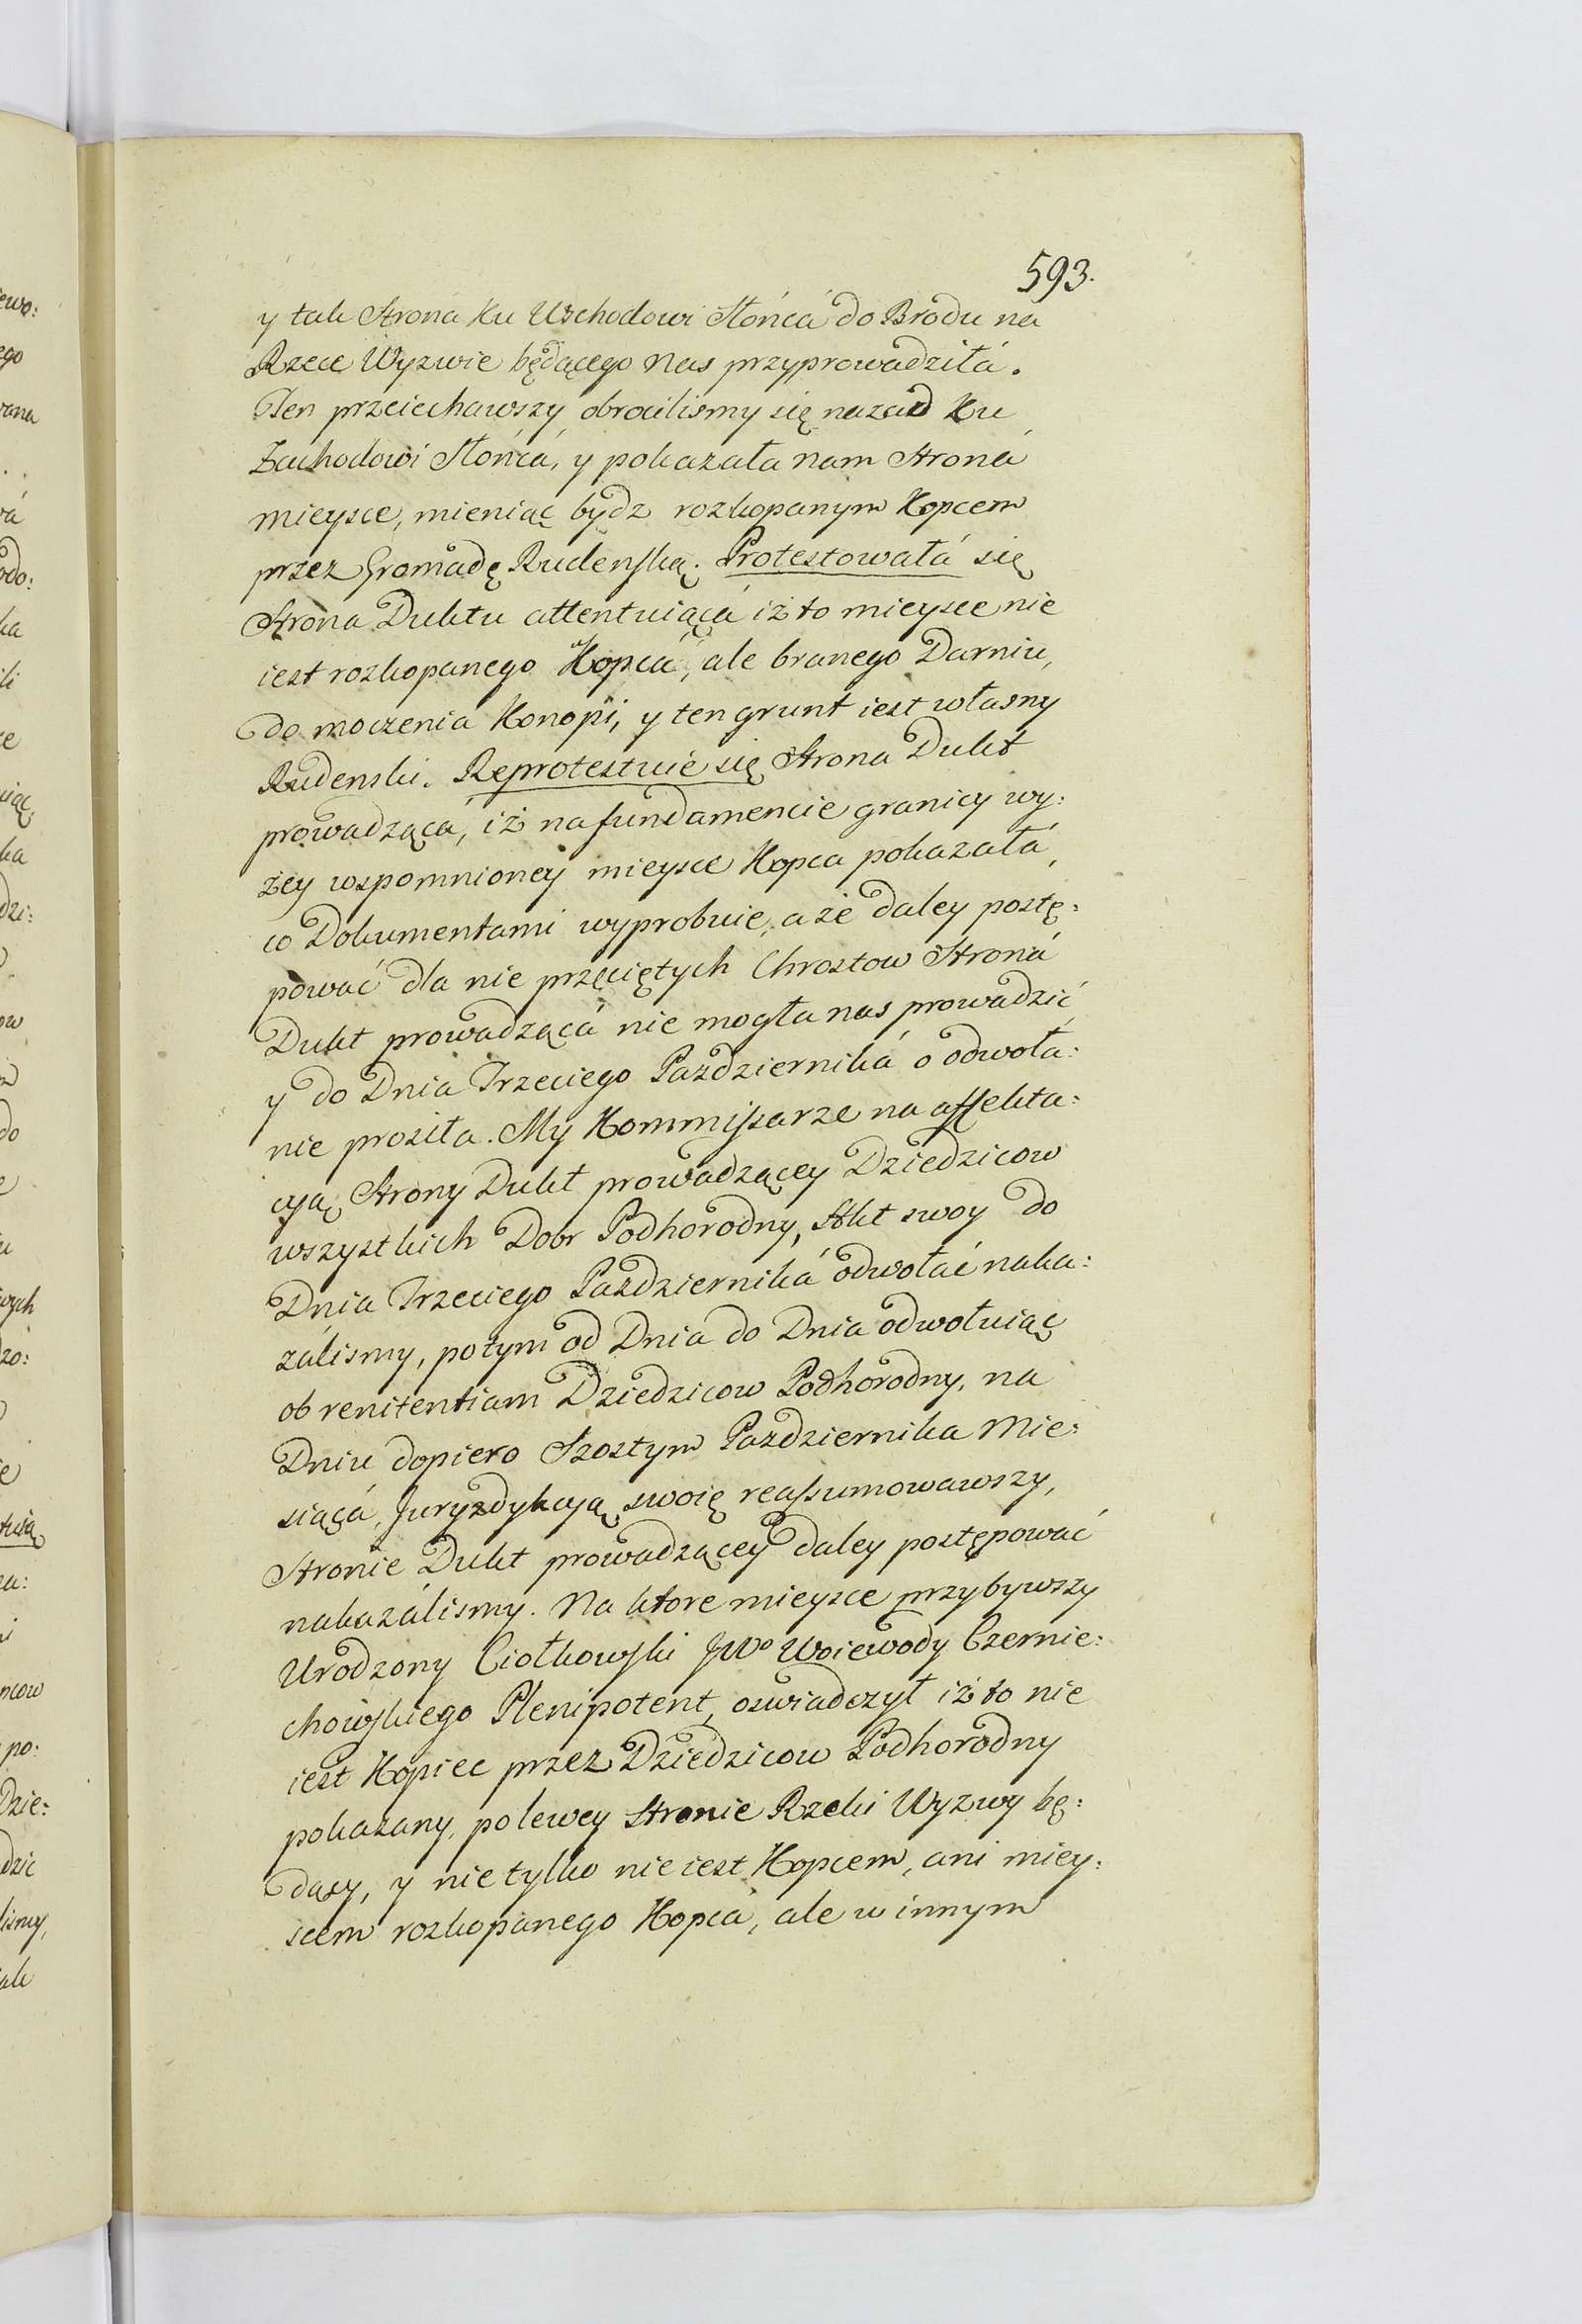 593.
y tak Strona ku Wschodowi Słońcá do Brodu na
Rzece Wyzwie będącego nas przyprowadziłá.
Ten przeiechawszy obrocilismy się nazad ku
Zachodowi Słońcá, y pokazała nam Stroná
mieysce, mieniąc bydz rozkopanym Kopcem
przez Gromadę Rudenską. Protestowałá się
Strona Duktu attentuiącá iż to mieysce nie
iest rozkopanego Kopcá, ale branego Darniu,
do moczenia Konopi, y ten grunt iest własny
Rudenski. Reprotestuie się Strona Dukt
prowadzącá, iż na fundamencie granicy wy:
żey wspomnioney mieysce Kopca pokazałá,
co Dokumentami wyprobuie, a że daley postę:
pować dla nie przęciętych Chrostow Stroná
Dukt prowadzącá nie mogła nas prowadzić
y do Dnia Trzeciego Pazdzierniká o odwoła:
nie prosiła. My Kommissarze na affekta:
cyą Strony Dukt prowadzącey Dziedzicow
wszystkich Dobr Podhorodny, Akt swoy do
Dnia Trzeciego Pazdzierniká odwołać naka:
zálismy, potym od Dnia do Dnia odwołuiąc
ob renitentiam Dziedzicow Podhorodny, na
Dniu dopiero Szostym Pazdziernika Mie:
siącá, Juryzdykcyą swoię reassumowawszy,
Stronie Dukt prowadzącey daley postępować
nakazálismy. Na ktore mieysce przybywszy
Urodzony Ciołkowski JWo Woiewody Czernie:
chowskiego Plenipotent, oswiadczył iż to nie
iest Kopiec przez Dziedzicow Podhorodny
pokazany, po lewey Stronie Rzeki Wyzwy bę:
dący, y nie tylko nie iest Kopcem, ani miey:
scem rozkopanego Kopcá, ale w innym